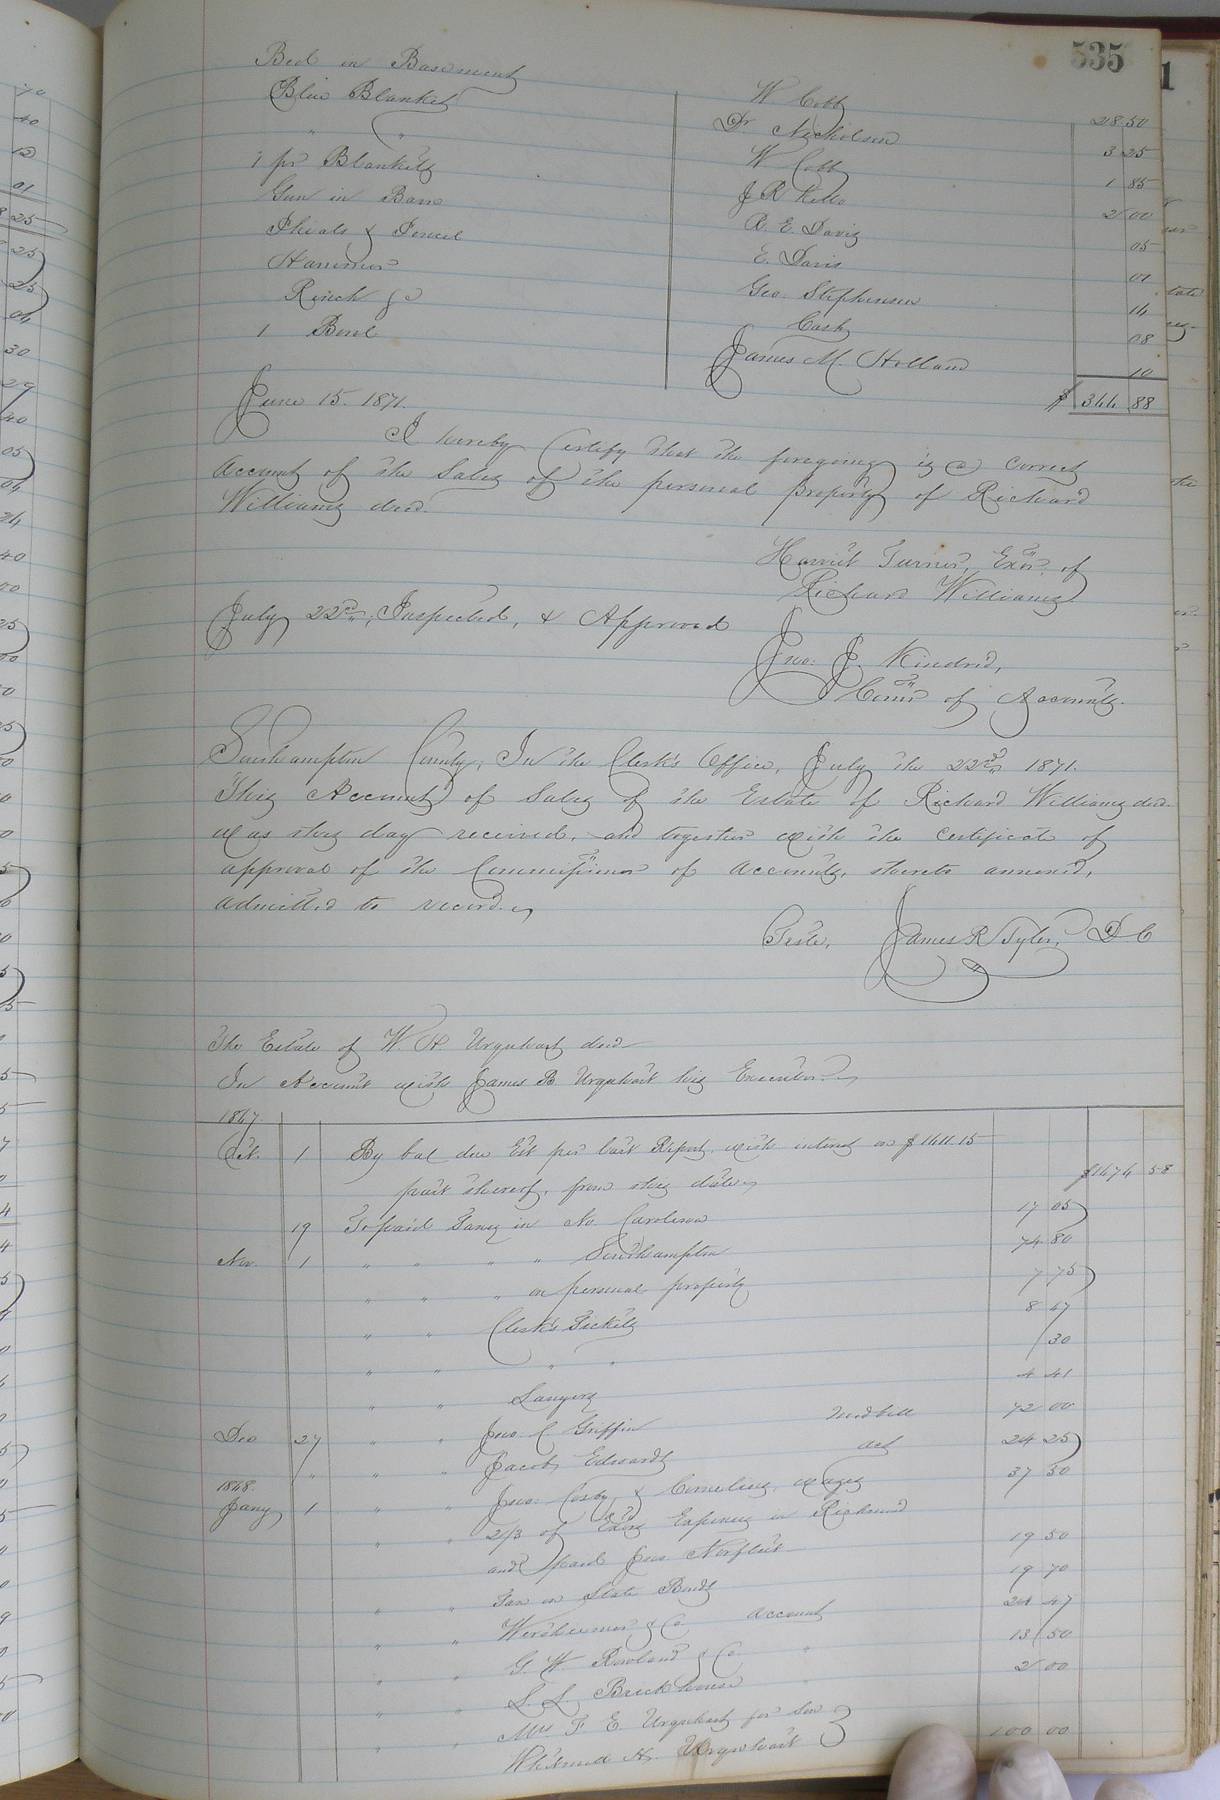 535
Bed in Basement W Cobb 28 50
Blue Blanket Dr Nicholson 3 25
" " W Cobb 1 85
1 pr Blankets J R Kello 2 00
Gun in Barn R. E. Davis 05
Phials & Pencil E. Davis 01
Hammer Geo. Stephenson 14
Rinch &c Cash 08
1 Bowl James M. Holland 10
June 15. 1871. $ 344 88
I hereby Certify that the foregoing is a correct
Account of the Sales of the personal property of Richard
Williams decd.
Harriet Turner, Exor. of
Richard Williams
July 22nd, Inspected, & Approved
Jno: J. Kindred,
Comr of Accounts.
Southampton County, In the Clerk's Office, July the 22nd 1871.
This Account of Sales of the Estate of Richard Williams decd.
was this day received, and together with the certificate of
approval of the Commissioner of accounts, thereto annexed,
admitted to record.
Teste, James R Tyler, D C
The Estate of W. H Urquhart decd
In Account with James B Urquhart his Executor.
1867
Oct. 1 By bal due Est per last Report, with interest on $1411.15
part thereof, from this date $1474 58
19 To paid Taxes in No. Carolina 17 05
Nov. 1 " " " " Southampton 74 80
" " " on personal property 7 75
" " Clerk's Tickets 8 47
" " " " 30
" " Lawyers 4 41
Dec 27 " " Jno. C Griffin med bill 72 00
" " " Jacob Edwards acct 24 25
1868.
Jany 1 " " Jno: Cosby, & Cornelius, wages 37 50
" " 2/3 of Exors Expenses in Richmond
and paid Jno Norfleet 19 50
" " Tax on State Bonds 19 70
" " & Co account 24 47
" " G. W. Rowland & Co. " 13 50
" " L. L. Brickhouse 2 00
" " Mrs F E. Urquhart for Son
Whitmel H. Urquhart 100 00